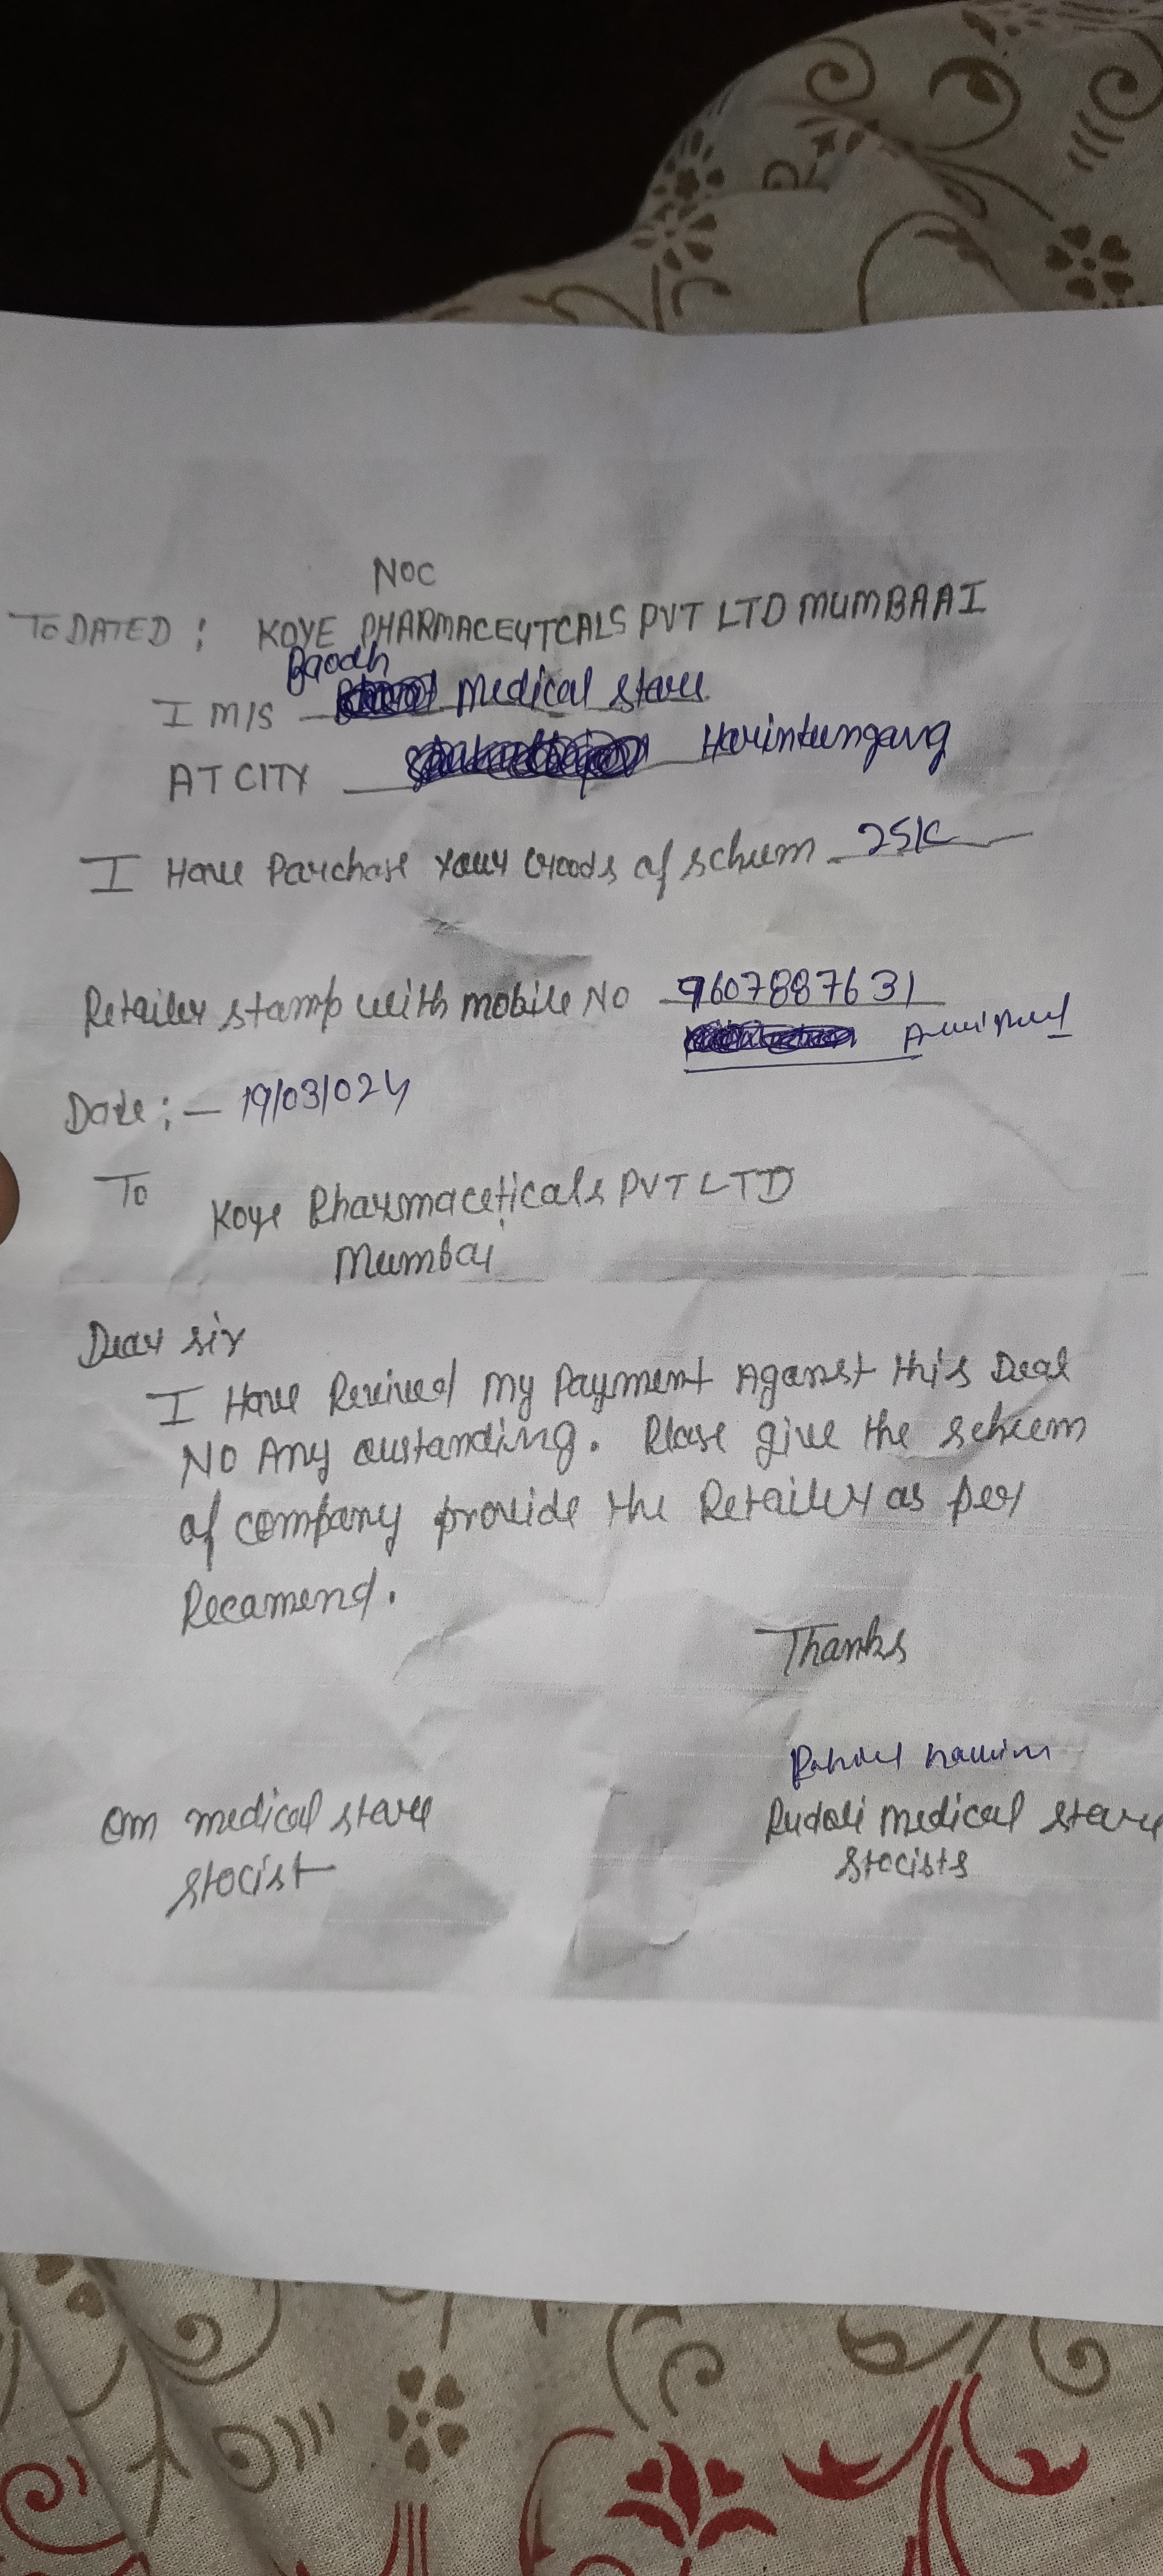 NOC
TO DATED : KOYE PHARMACEUTCALS PVT LTD MUMBAAI
I M/S Medical store
AT CITY Harintungang
I Have Parchase your Goods of scheem 25K
Retailer stamp with mobile No 9607887631
Date :- 19/03/024
To
Koye Pharmaceticals PVT LTD
Mumbai
Dear sir
I Have Revived My Payment Aganst this Deal
NO Any oustanding. Plase give the scheem
of company provide the Retailer as per
Recamend.
Thanks
Om medical store
stocist
Rudoli Medical store
Stocists